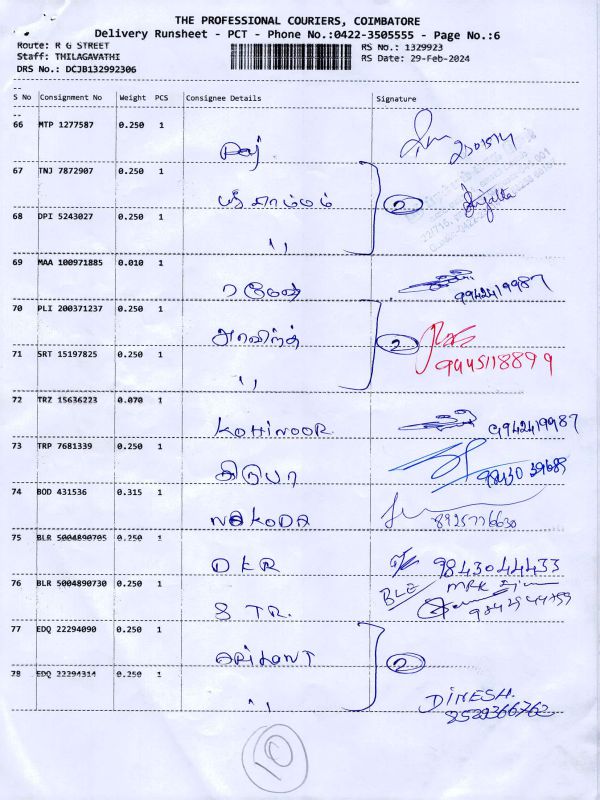 THE PROFESSIONAL COURIERS, COIMBATORE
Delivery Runsheet - PCT - Phone No.:0422-3505555 - Page No.:6
Route: R G STREET RS No.: 1329923
Staff: THILAGAVATHI RS Date: 29-Feb-2024
DRS No.: DCJB132992306
--
S No Consignment No Weight PCS Consignee Details Signature
--
66 MTP 1277587 0.250 1
67 TNJ 7872907 0.250 1
2
68 DPI 5243027 0.250 1
''
69 MAA 100971885 0.010 1
ரமேஷ் 9942419987
70 PLI 200371237 0.250 1
அரவிந்த் 2
9445118899
71 SRT 15197825 0.250 1
''
72 TRZ 15636223 0.070 1
KOHINOOR 9942419987
73 TRP 7681339 0.250 1
கிருபா 98430 39689
74 BOD 431536 0.315 1
NAKODA 8925776630
75 BLR 5004890705 0.250 1
DKR 9843044433
76 BLR 5004890730 0.250 1
BLE MRK
S TR.
77 EDQ 22294090 0.250 1
ARIHANT 2
78 EDQ 22294314 0.250 1
'' DINESH.
10